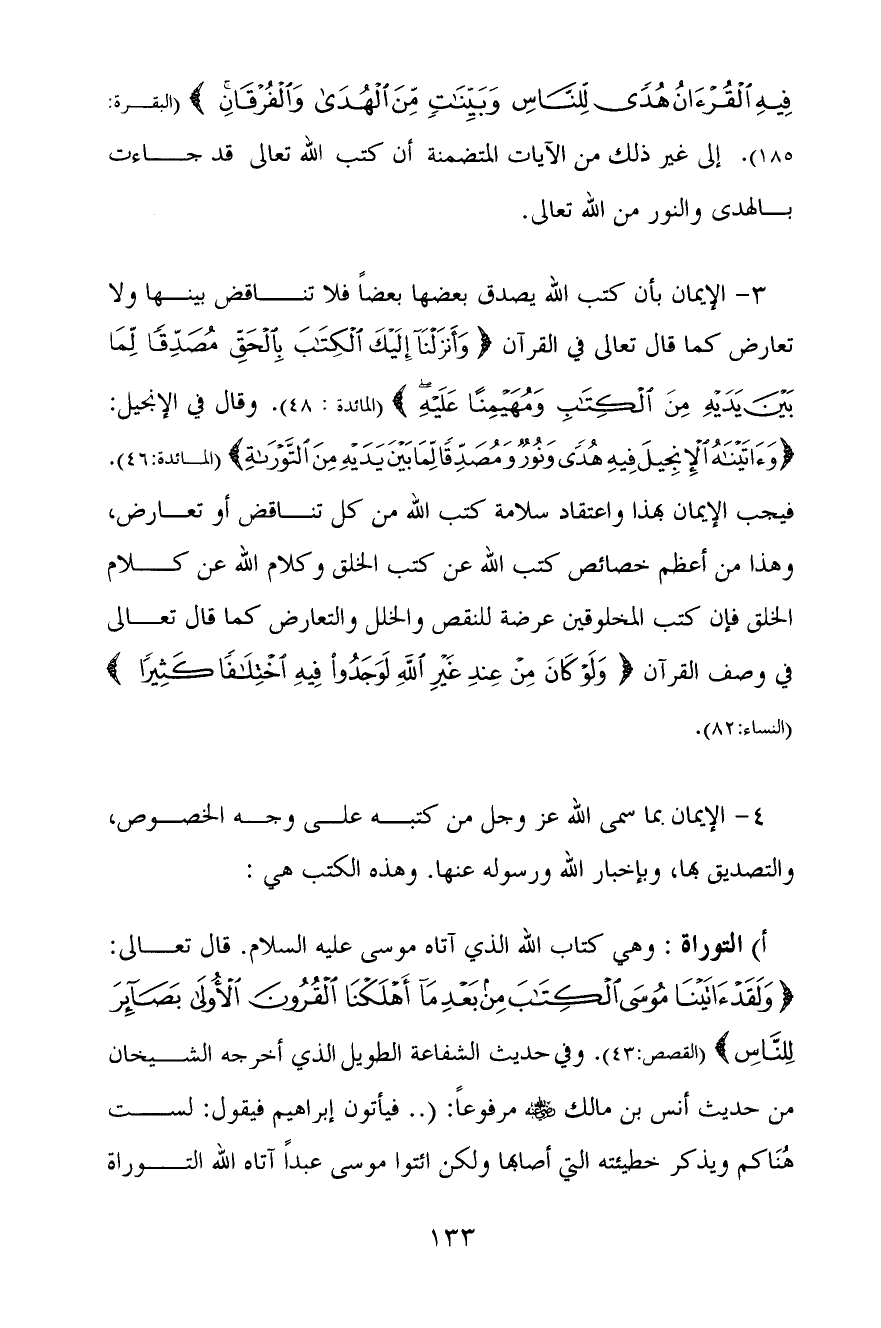 فِيهِ ٱلْقُرْءَانُ هُدًى لِّلنَّاسِ وَبَيِّنَٰتٍ مِّنَ ٱلْهُدَىٰ وَٱلْفُرْقَانِۚ ﴾ (البقرة:
١٨٥). إلى غير ذلك من الآيات المتضمنة أن كتب الله تعالى قد جاءت
بالهدى والنور من الله تعالى.
٣- الإيمان بأن كتب الله يصدق بعضها بعضاً فلا تناقض بينها ولا
تعارض كما قال تعالى في القرآن ﴿ وَأَنزَلْنَآ إِلَيْكَ ٱلْكِتَٰبَ بِٱلْحَقِّ مُصَدِّقًا لِّمَا
بَيْنَ يَدَيْهِ مِنَ ٱلْكِتَٰبِ وَمُهَيْمِنًا عَلَيْهِۖ ﴾ (المائدة : ٤٨). وقال في الإنجيل:
﴿وَءَاتَيْنَٰهُ ٱلْإِنجِيلَ فِيهِ هُدًى وَنُورٌ وَمُصَدِّقًا لِّمَا بَيْنَ يَدَيْهِ مِنَ ٱلتَّوْرَىٰةِ﴾ (المائدة:٤٦).
فيجب الإيمان بهذا واعتقاد سلامة كتب الله من كل تناقض أو تعارض،
وهذا من أعظم خصائص كتب الله عن كتب الخلق وكلام الله عن كلام
الخلق فإن كتب المخلوقين عرضة للنقص والخلل والتعارض كما قال تعالى
في وصف القرآن ﴿ وَلَوْ كَانَ مِنْ عِندِ غَيْرِ ٱللَّهِ لَوَجَدُوا۟ فِيهِ ٱخْتِلَٰفًا كَثِيرًا ﴾
(النساء:٨٢).
٤- الإيمان بما سمى الله عز وجل من كتبه على وجه الخصوص،
والتصديق بها، وبإخبار الله ورسوله عنها. وهذه الكتب هي :
أ) التوراة : وهي كتاب الله الذي آتاه موسى عليه السلام. قال تعالى:
﴿ وَلَقَدْ ءَاتَيْنَا مُوسَى ٱلْكِتَٰبَ مِنۢ بَعْدِ مَآ أَهْلَكْنَا ٱلْقُرُونَ ٱلْأُولَىٰ بَصَآئِرَ
لِلنَّاسِ ﴾ (القصص:٤٣). وفي حديث الشفاعة الطويل الذي أخرجه الشيخان
من حديث أنس بن مالك ﷺ مرفوعاً: (.. فيأتون إبراهيم فيقول: لست
هُنَاكم ويذكر خطيئته التي أصابها ولكن ائتوا موسى عبداً آتاه الله التوراة
١٣٣